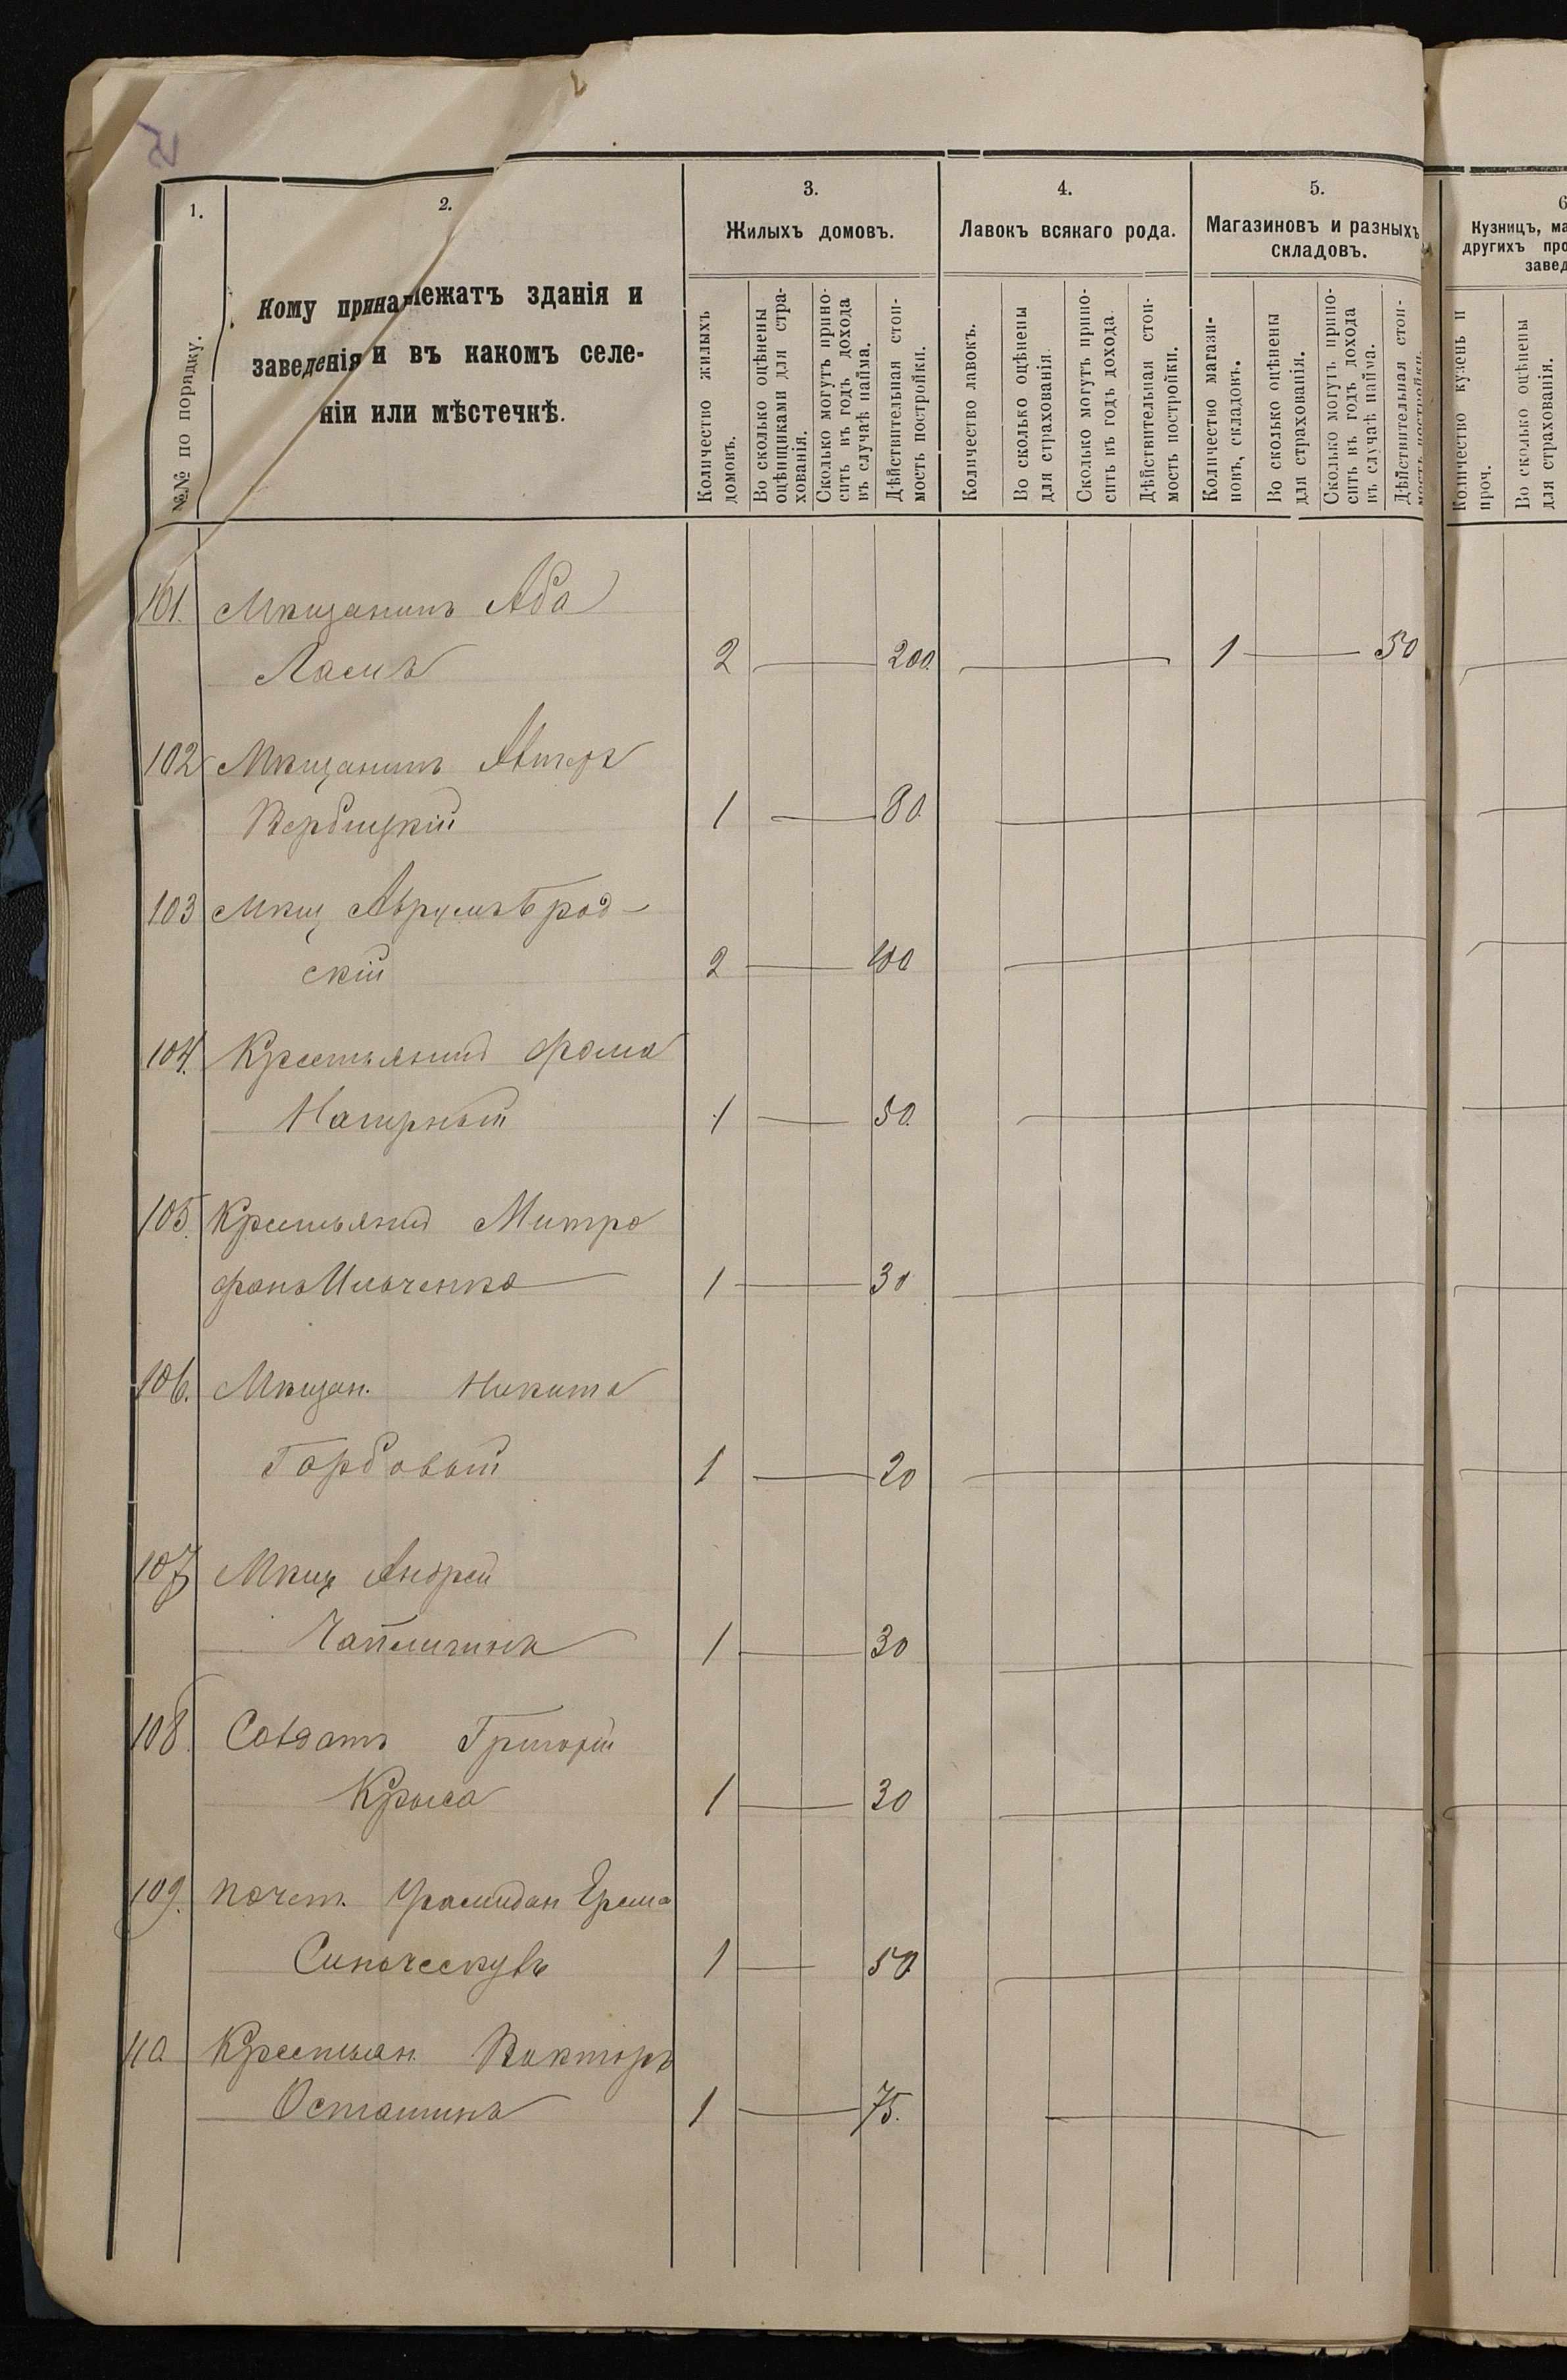 1.
2.
3.
4.
5.
6
№№ по порядку.
Кому принадлежатъ зданія и
заведенія и въ какомъ селе-
ніи или мѣстечкѣ.
Жилыхъ домовъ.
Количество жилыхъ
домовъ.
Во сколько оцѣнены
оцѣнщиками для стра-
хованія.
Сколько могутъ прино-
сить въ годъ дохода
въ случаѣ найма.
Дѣйствительная стои-
мость постройки.
Лавокъ всякаго рода.
Количество лавокъ.
Во сколько оцѣнены
для страхованія.
Сколько могутъ прино-
сить въ годъ дохода.
Дѣйствительная стои-
мость постройки.
Магазиновъ и разныхъ
складовъ.
Количество магази-
новъ, складовъ.
Во сколько оцѣнены
для страхованія.
Сколько могутъ прино-
сить въ годъ дохода
въ случаѣ найма.
Дѣйствительная стои-
мость постройки.
Кузницъ, ма
другихъ про
завед
Количество кузень и
проч.
Во сколько оцѣнены
для страхованія.
101. Мѣщанинъ Аба
2 200. 1 50
102 Мѣщанинъ
Вербицкій 1 80.
103 Мѣщ Аврумъ Брод-
скій 2 100
104. Крестьянинъ Фома
Нагирный 1 50.
105. Крестьянинъ Митро
фанъ Ильченко 1 30
106. Мѣщан. Никита
Горбовый 1 20
107 Мѣщ Андрей
1 30
108. Солдатъ Григорій
Крыса 1 30
109. Почет. Ерема
1 50.
110 Крестьян. Викторъ
Осташинъ 1 75.